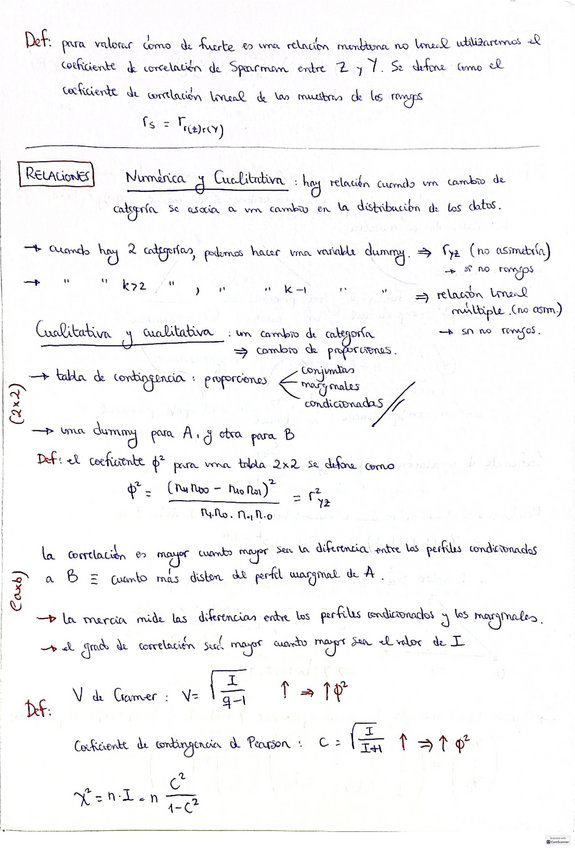 Def: para valorar cómo de fuerte es una relación monótona no lineal utilizaremos el
coeficiente de correlación de Spearman entre Z y Y. Se define como el
coeficiente de correlación lineal de las muestras de los rangos
rs = r r(z)r(Y)
RELACIONES Numérica y Cualitativa: hay relación cuando un cambio de
categoría se asocia a un cambio en la distribución de los datos.
→ cuando hay 2 categorías, podemos hacer una variable dummy. ⇒ ryz (no asimetría)
→ si no rangos
→ " " k>2 " , " " k-1 " " ⇒ relación lineal
múltiple. (no asim.)
→ si no rangos.
Cualitativa y cualitativa: un cambio de categoría
⇒ cambio de proporciones.
(2x2)
→ tabla de contingencia: proporciones < conjuntas
marginales
condicionadas
→ una dummy para A, y otra para B
Def: el coeficiente ϕ² para una tabla 2x2 se define como
ϕ² = (n₁₁n₀₀ - n₁₀n₀₁)² / n₁.n₀. n.₁n.₀ = r²yz
(axb)
la correlación es mayor cuanto mayor sea la diferencia entre los perfiles condicionados
a B ≡ cuanto más disten del perfil marginal de A.
→ la inercia mide las diferencias entre los perfiles condicionados y los marginales.
→ el grado de correlación será mayor cuanto mayor sea el valor de I
Def: V de Cramer: V = √(I / q-1) ↑ ⇒ ↑ϕ²
Coeficiente de contingencia d Pearson: C = √(I / I+1) ↑ ⇒ ↑ ϕ²
χ² = n·I = n C² / 1-C²
CamScanner